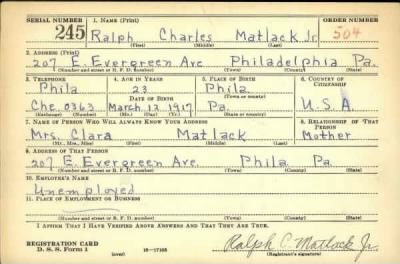 SERIAL NUMBER 1. NAME (Print) ORDER NUMBER
245 Ralph Charles Matlack Jr. 504
(First) (Middle) (Last)
2. ADDRESS (Print)
207 E. Evergreen Ave Philadelphia Pa.
(Number and street or R. F. D. number) (Town) (County) (State)
3. TELEPHONE 4. AGE IN YEARS 5. PLACE OF BIRTH 6. COUNTRY OF CITIZENSHIP
Phila 23 Phila.
(Town or county)
DATE OF BIRTH
Che. 0363 March 12 1917 Pa. U.S.A.
(Exchange) (Number) (Mo.) (Day) (Yr.) (State or country)
7. NAME OF PERSON WHO WILL ALWAYS KNOW YOUR ADDRESS 8. RELATIONSHIP OF THAT PERSON
Mrs. Clara Matlack Mother
(Mr., Mrs., Miss) (First) (Middle) (Last)
9. ADDRESS OF THAT PERSON
207 E. Evergreen Ave. Phila Pa.
(Number and street or R. F. D. number) (Town) (County) (State)
10. EMPLOYER'S NAME
Unemployed
11. PLACE OF EMPLOYMENT OR BUSINESS
(Number and street or R. F. D. number) (Town) (County) (State)
I AFFIRM THAT I HAVE VERIFIED ABOVE ANSWERS AND THAT THEY ARE TRUE.
REGISTRATION CARD
D. S. S. Form 1 (over) 16—17105 Ralph C. Matlack Jr.
(Registrant's signature)